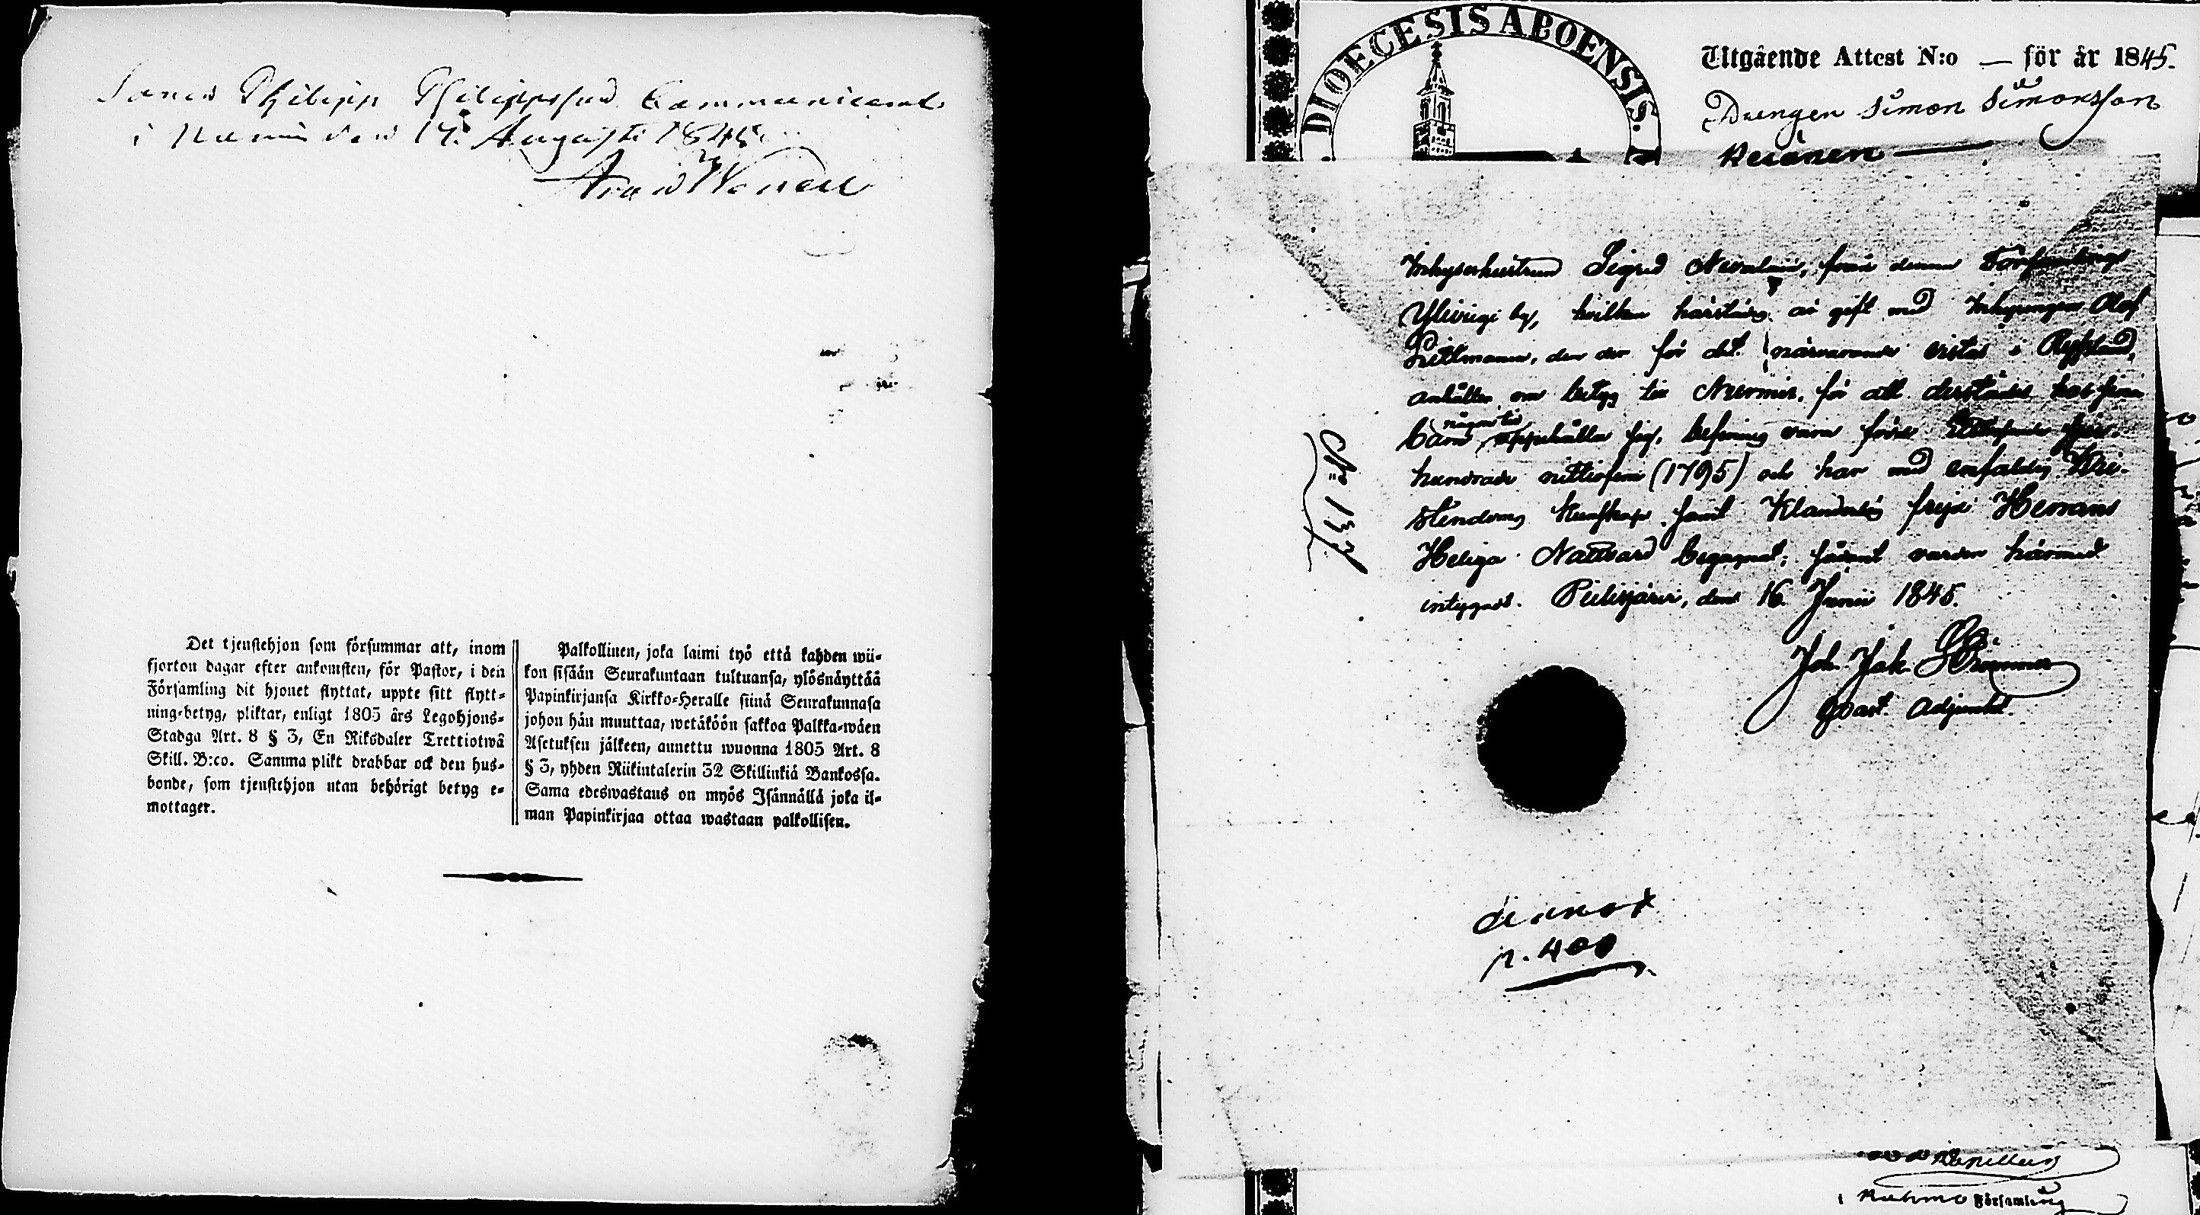 Philipp Philippsson Communicerat
i den 17. Augusti 1845.
Det tjenstehjon som försummar att, inom
fjorton dagar efter ankomsten, för Pastor, i den
Församling dit hjonet flyttat, uppte sitt flytt-
ning-betyg, pliktar, enligt 1805 års Legohjons-
Stadga Art. 8 § 3, En Riksdaler Trettiotwå
Skill. B:co. Samma plikt drabbar ock den hus-
bonde, som tjenstehjon utan behörigt betyg e-
mottager.
Palkollinen, joka laimi työ että kahden wii-
kon sisään Seurakuntaan tultuansa, ylösnäyttää
Papinkirjansa Kirkko-Heralle siinä Seurakunnasa
johon hän muuttaa, wetäköön sakkoa Palkka-wäen
Asetuksen jälkeen, annettu wuonna 1805 Art. 8
§ 3, yhden Riikintalerin 32 Skillinkiä Bankossa.
Sama edeswastaus on myös Isännällä joka il-
man Papinkirjaa ottaa wastaan palkollisen.
DIOECESIS ABOENSIS.
Utgående Attest N:o — för år 1845.
Drengen Simon Simonsson
Inhyseshustrun Sigrid från denna Församlings
by, hvilken härstädes är gift med Inhysingen Olof
den der för det närvarande vistas i Ryssland,
anhåller om betyg till Nurmis, för att derstädes hos sina
barn någon tid uppehålla sig, befinnes vara född
hundrade nittiofem (1795) och har med enfaldig Kri-
stendoms kunskap samt Klanderlös frejd Herrans
Heliga Nattvard begagnat; såsom varder härmed
intygadt. Pielisjärvi, den 16 Junii 1845.
Joh. Jak.
Past. Adjunkt.
N:o 137.
p. 400
Församling